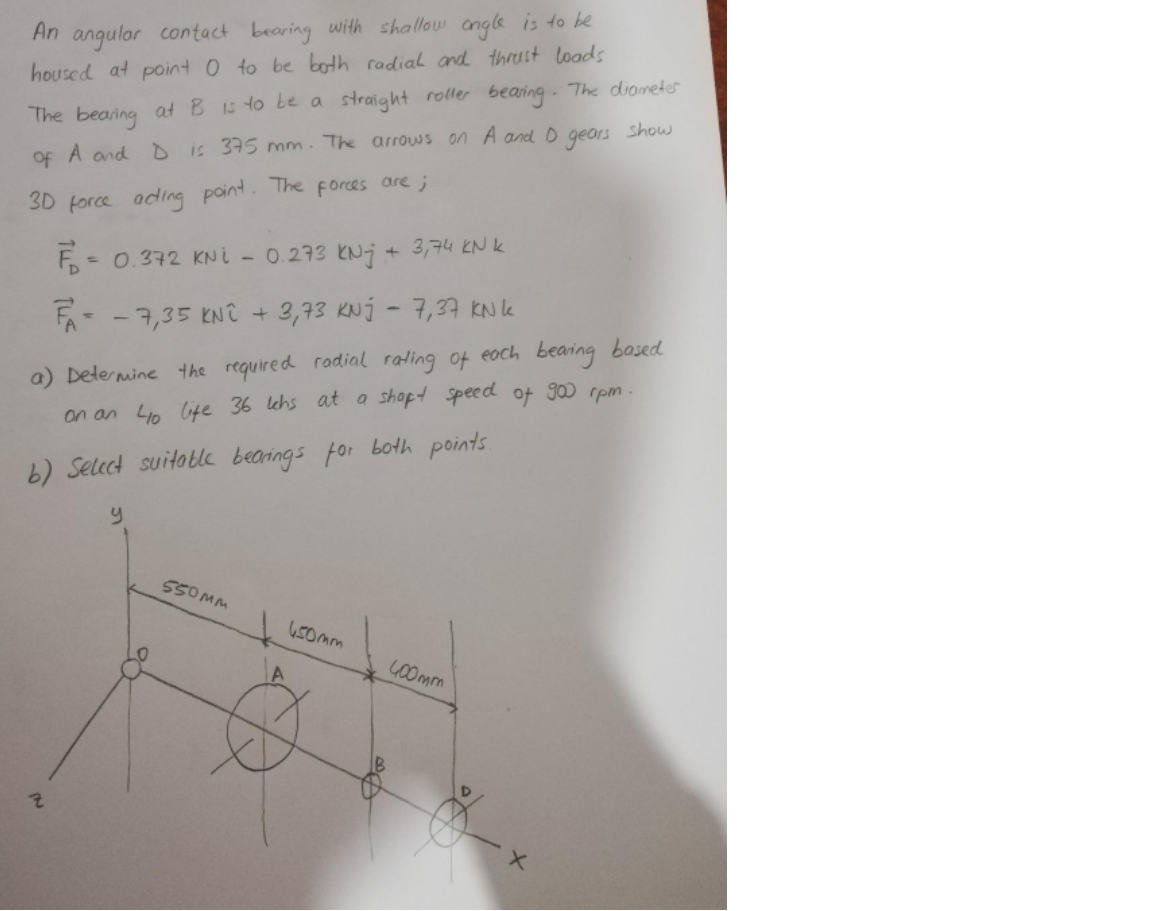 An angular contact bearing with shallow angle is to be
housed at point O to be both radial and thrust loads
The bearing at B is to be a straight roller bearing. The diameter
of A and D is 375 mm. The arrows on A and D gears show
3D force acting point. The forces are ;
F⃗D = 0.372 KNi - 0.273 KNj + 3,74 KNk
F⃗A = - 7,35 KNî + 3,73 KNj - 7,37 KNk
a) Determine the required radial rating of each bearing based
on an L10 life 36 khs at a shaft speed of 900 rpm.
b) Select suitable bearings for both points.
y
550mm
450mm
400mm
O
A
B
D
z
x